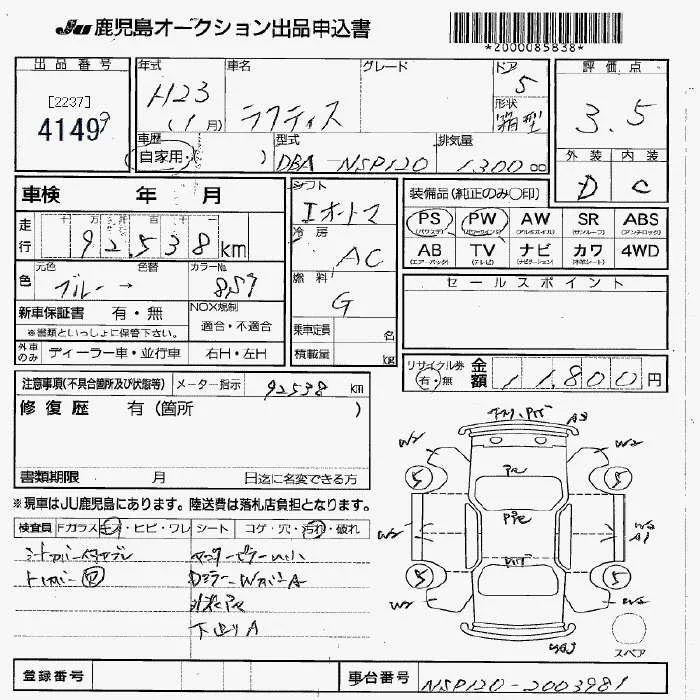 JU 鹿児島オークション出品申込書
*2000085838*
出品番号
[2237]
4149
年式
H23
(1月)
車名
ラクティス
グレード
ドア
5
形状
箱型
評価点
3.5
外装 内装
D C
車歴
自家用・( )
型式
DBA-NSP120
排気量
1,300 cc
車検 年 月
走行
千 万 千 百 十
92,538 km
シフト
Iオートマ
冷房
AC
燃料
G
乗車定員 名
積載量 kg
装備品(純正のみ○印)
PS PW AW SR ABS
(パワステ) (パワーウインド) (アルミホイル) (サンルーフ) (アンチロック)
AB TV ナビ カワ 4WD
(エアーバック) (テレビ) (ナビゲーション) (本革シート)
元色 色替 カラーNo.
色 ブルー → 8S9
新車保証書 有・無
※書類といっしょに保管下さい。
NOX規制
適合・不適合
外車のみ ディーラー車・並行車 右H・左H
セールスポイント
リサイクル券
有・無
金額 11,800円
注意事項(不具合箇所及び状態等) メーター指示 92538 km
修復歴 有(箇所 )
書類期限 月 日迄に名変できる方
※現車はJU鹿児島にあります。陸送費は落札店負担となります。
検査員 Fガラス キズ・ヒビ・ワレ シート コゲ・穴・汚れ・破れ
W2 A3 W2
5 5
W2 W2
A1
5 5
W2 W2
スペア
下廻りA
登録番号
車台番号 NSP120-2003981